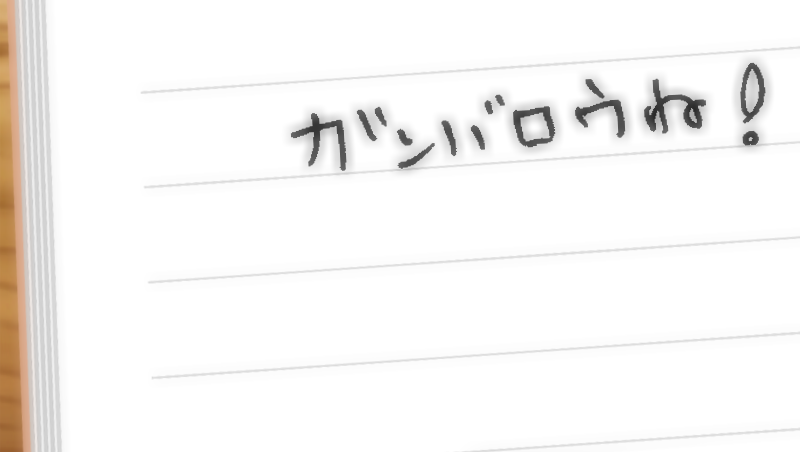 ガンバロウね!